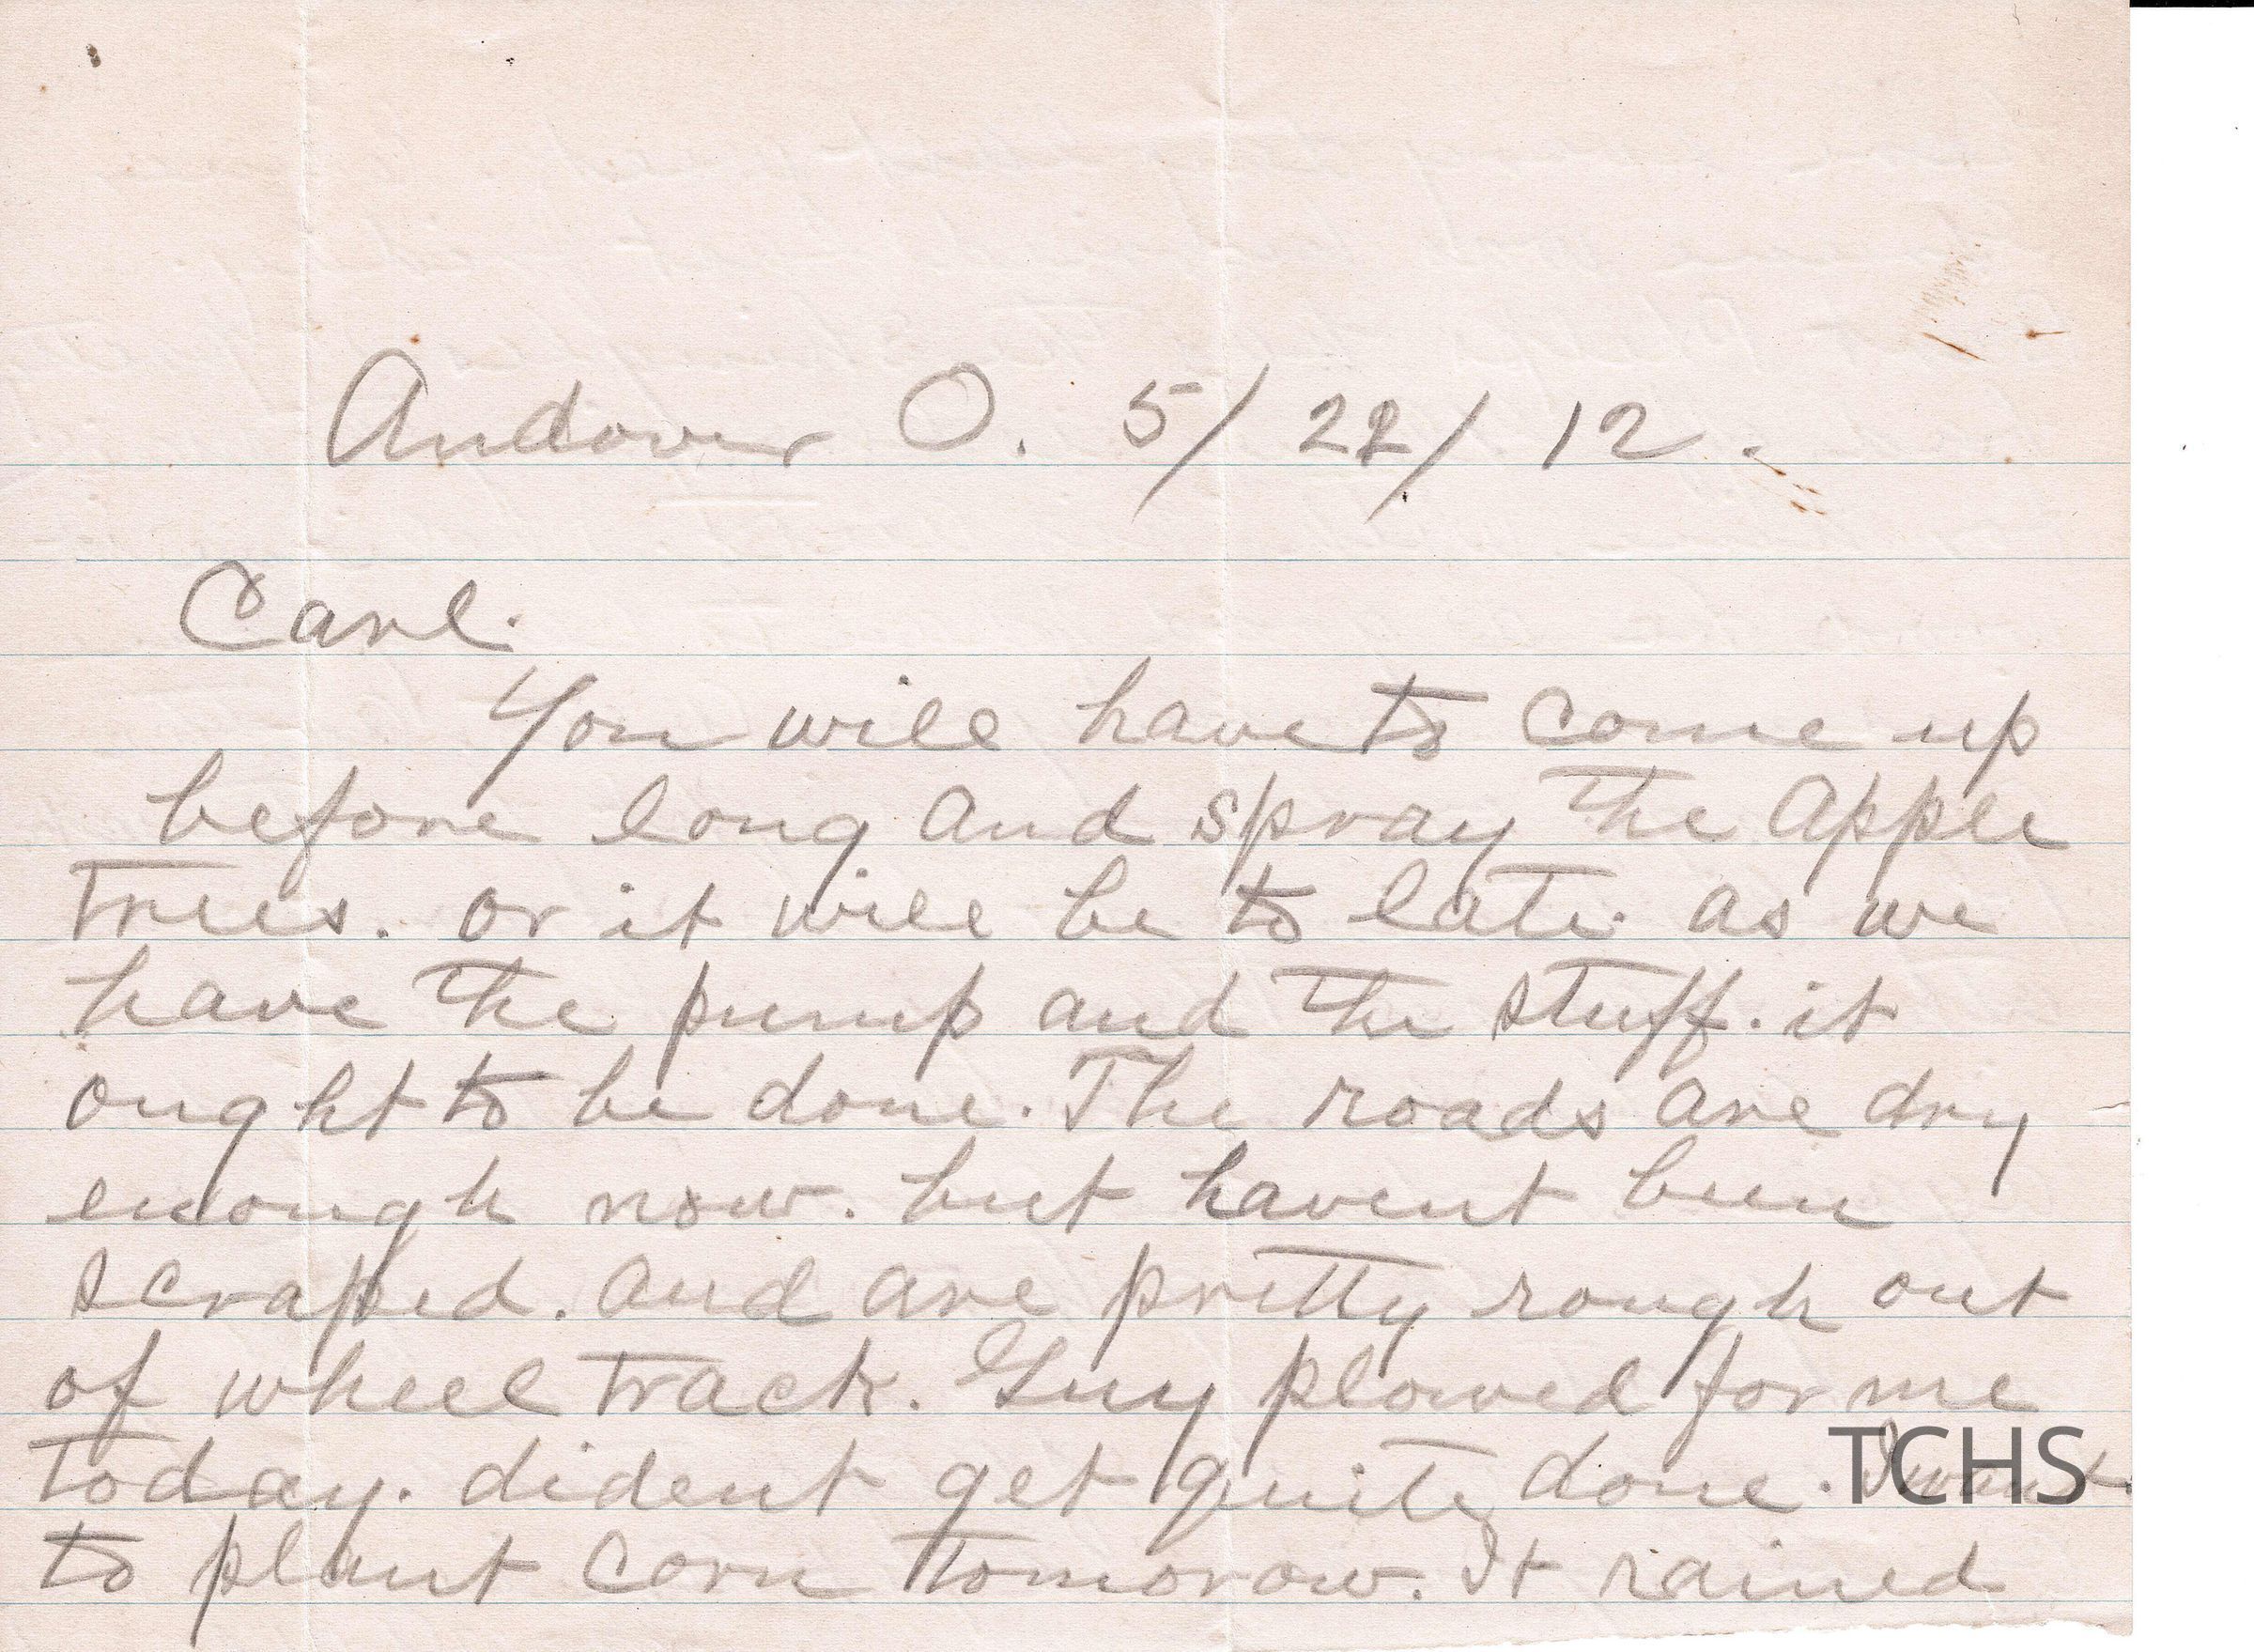 Andover O. 5/22/12.
Carl.
You will have to come up
before long and spray the apple
trees. or it will be to late. as we
have the pump and the stuff. it
ought to be done. The roads are dry
enough now. but havent been
scraped. and are pretty rough out
of wheel track. Guy plowed for me
today. dident get quite done. I want
to plant corn tomorow. It rained
TCHS